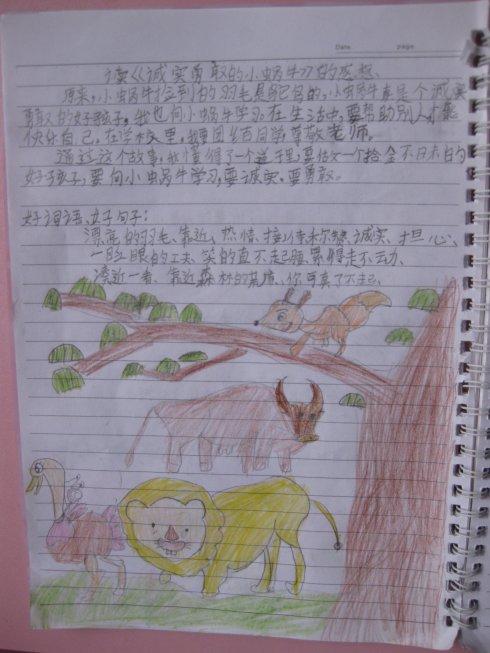 Date page
读《诚实勇敢的小蜗牛》的感想、
原来,小蜗牛捡到的羽毛是鸵鸟的,小蜗牛真是个诚实
勇敢的好孩子,我也向小蜗牛学习。在生活中,要帮助别人才能
快乐自己,在学校里,我要团结同学尊敬老师。
通过这个故事,我懂得了一个道理:要做一个拾金不昧的
好孩子;要向小虫蜗牛学习,要诚实。要勇敢。
好词语、好句子:
漂亮的羽毛、靠近、热情、接待、诚实、担心、
一眨眼的工夫、笑的直不起腰、累得走不动、
凑近一看、靠近森林的、你可真了不起、